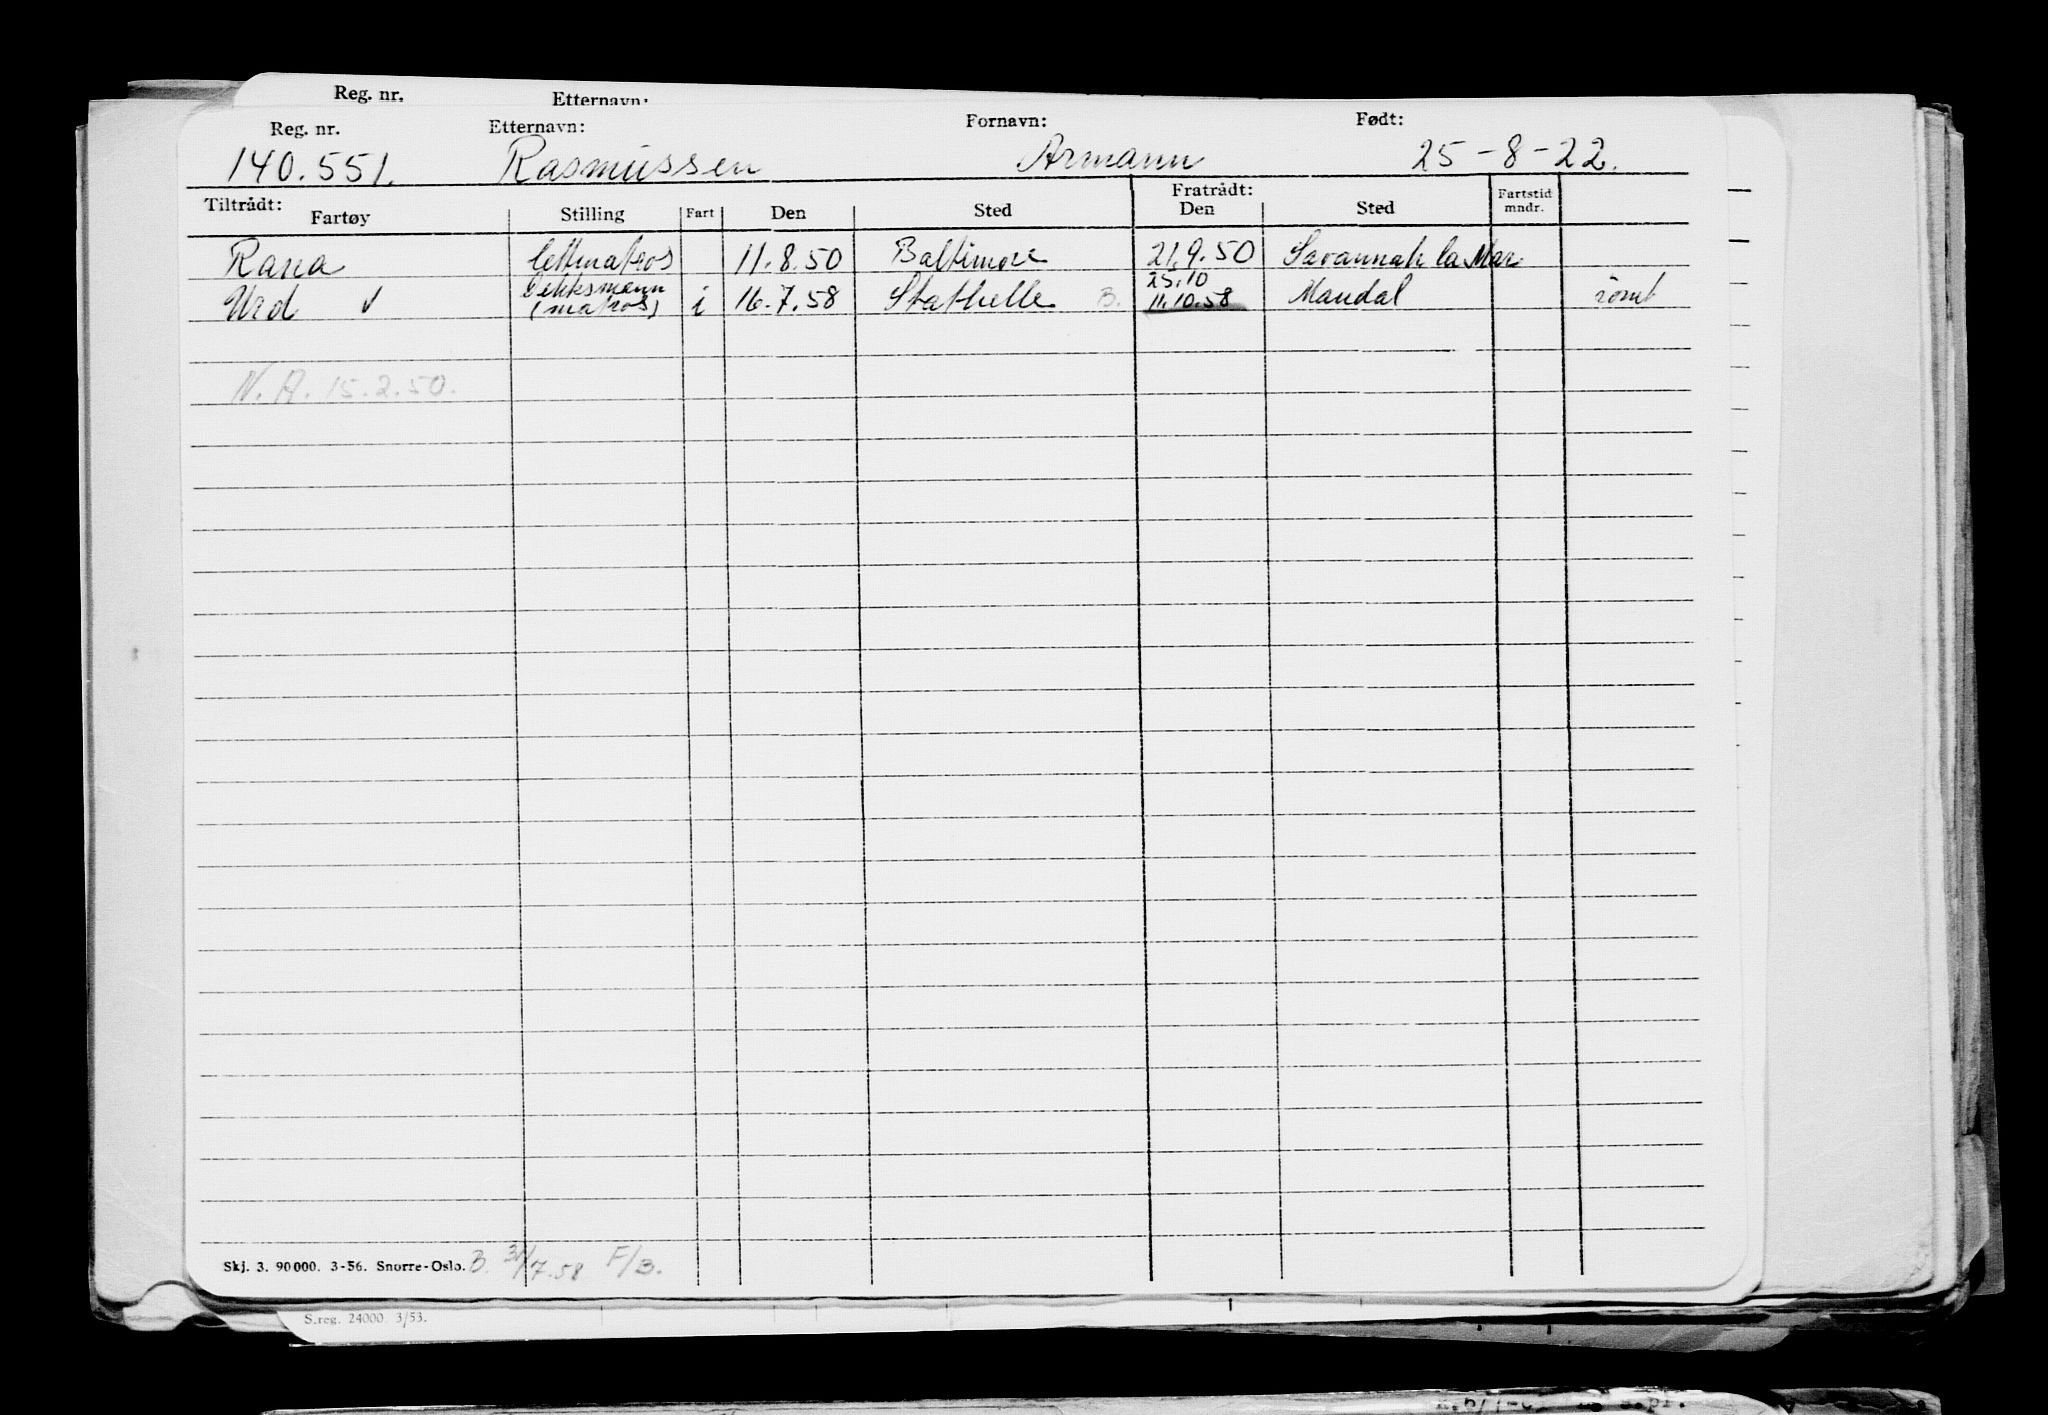 Reg. nr. Etternavn:
Reg. nr. Etternavn: Fornavn: Født:
140.551. Rasmussen Armann 25-8-22.
Tiltrådt: Fratrådt:
Fartøy Stilling Fart Den Sted Den Sted Fartstid mndr.
Rana lettmatros 11.8.50 Baltimore 21.9.50 Savannah la Mar
25.10
Urd ✓ dekksmann (matros) i 16.7.58 Stathelle B. 11.10.58 Mandal rømt
N.A. 15.2.50.
Skj. 3. 90000. 3-56. Snorre-Oslo. B. 31/7.58 F/B.
S.reg. 24000 3/53.